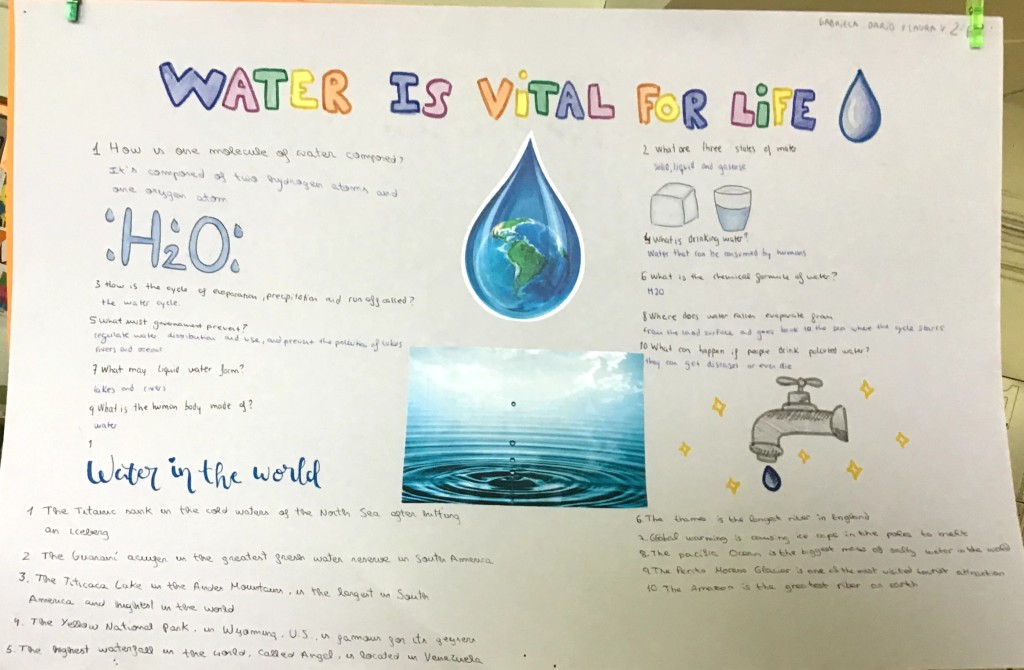 GABRIELA, DARIO Y LAURA V
WATER IS VITAL FOR LIFE
1 How is one molecule of water composed?
It's composed of two hydrogen atoms and
one oxygen atom
H2O
3 How is the cycle of evaporation, precipitation and run off called?
the water cycle.
5 What must government prevent?
regulate water distribution and use, and prevent the pollution of lakes
rivers and ocean
7 What may liquid water form?
lakes and rivers
9 What is the human body made of?
water
1
2 What are three states of
solid, liquid and
4 What is drinking water?
Water that can be consumed by humans
6 What is the chemical formula of water?
H2O
8 Where does water evaporate from
from the land surface and goes back to the sea where the cycle starts
10 What can happen if people drink polluted water?
they can get diseases or even die
Water in the world
1 The Titanic sank in the cold waters of the North Sea after hitting
an iceberg
2 The Guaraní in the greatest fresh water reserve in South America
3. The Titicaca Lake in the Andes Mountains, is the largest in South
America and highest in the world
4. The Yellow National Park, in Wyoming, U.S., is famous for its geysers
5. The highest waterfall in the world, called Angel, is located in Venezuela
6. The thames is the longest river in England
7. Global warming is causing ice caps in the poles to
8. The pacific Ocean is the biggest mass of salty water in the world
9. The Perito Moreno Glacier is one of the most visited tourist attraction
10 The Amazon is the greatest on earth